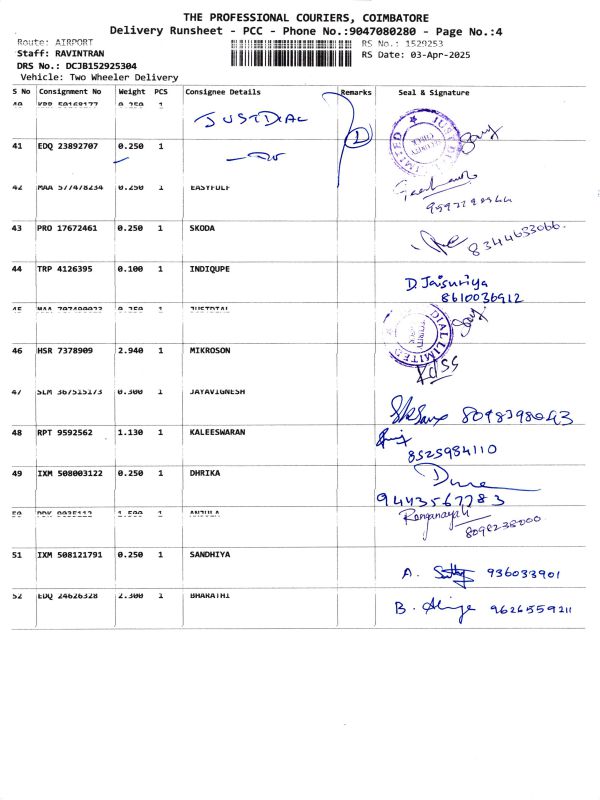 THE PROFESSIONAL COURIERS, COIMBATORE
Delivery Runsheet - PCC - Phone No.:9047080280 - Page No.:4
Route: AIRPORT RS No.: 1529253
Staff: RAVINTRAN RS Date: 03-Apr-2025
DRS No.: DCJB152925304
Vehicle: Two Wheeler Delivery
S No Consignment No Weight PCS Consignee Details Remarks Seal & Signature
40 0.250 1
JUSTDIAL 1
41 EDQ 23892707 0.250 1
42 MAA 577478234 0.250 1 EASYFULF
43 PRO 17672461 0.250 1 SKODA
8344633066.
44 TRP 4126395 0.100 1 INDIQUPE
D. Jaisuriya
8610036912
45 0.250 1 JUSTDIAL
DIAL LIMITED
46 HSR 7378909 2.940 1 MIKROSON
47 SLM 367515173 0.300 1 JAYAVIGNESH
8098398043
48 RPT 9592562 1.130 1 KALEESWARAN
8525984110
49 IXM 508003122 0.250 1 DHRIKA
9443567783
50 1.500 1 ANJULA
Ranganayaki
8098238000
51 IXM 508121791 0.250 1 SANDHIYA
A. 936033901
52 EDQ 24626328 2.300 1 BHARATHI
B. 9626559211